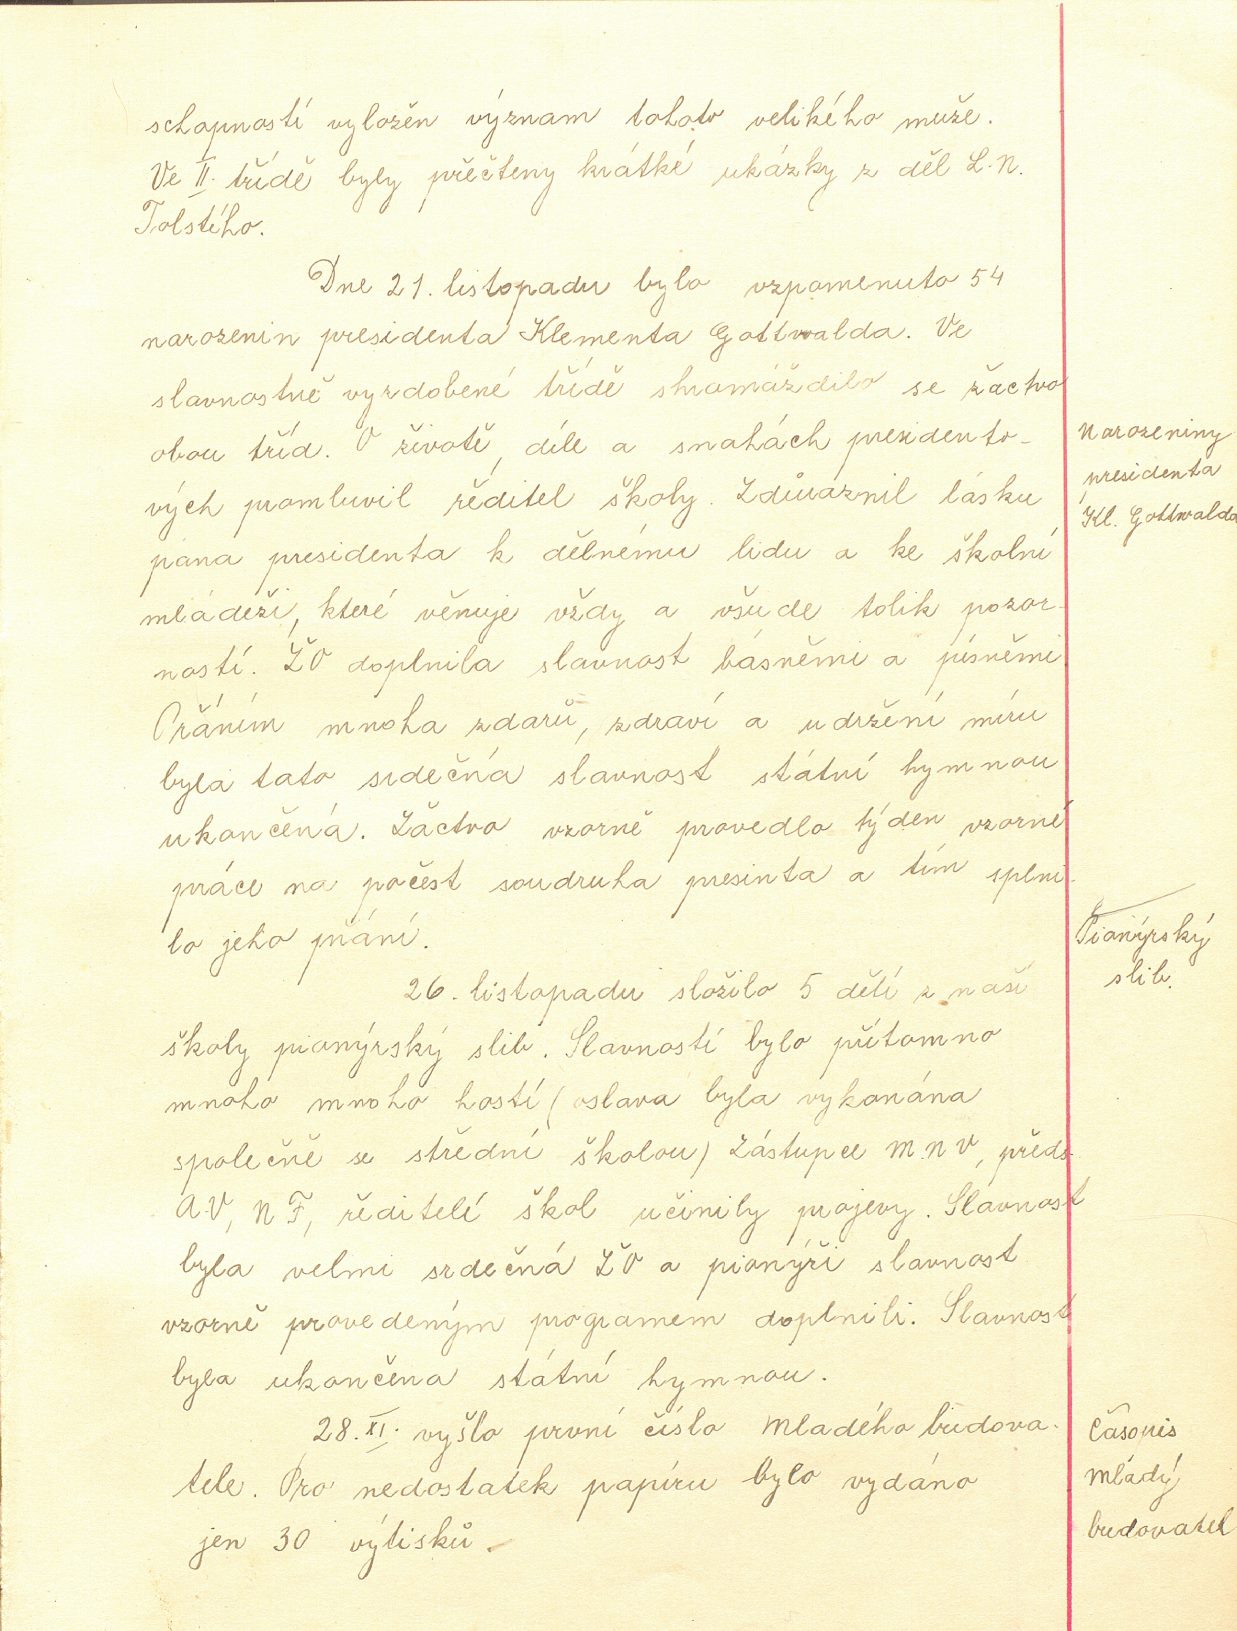 schopností vyložen význam tohoto velikého muže.
Ve II. třídě byly přečteny krátké ukázky z děl L. N.
Tolstého.
Dne 21. listopadu bylo vzpomenuto 54
narozenin presidenta Klementa Gottwalda. Ve
slavnostně vyzdobené třídě shromáždilo se žactvo
obou tříd. O životě, díle a snahách presidento-
vých promluvil ředitel školy. Zdůraznil lásku
pana presidenta k dělnému lidu a ke školní
mládeži, které věnuje vždy a všude tolik pozor-
ností. ŽO doplnila slavnost básněmi a písněmi
Přáním mnoha zdarů, zdraví a udržení míru
byla tato srdečná slavnost státní hymnou
ukončená. Žáctvo vzorně provedlo týden vzorné
práce na počest soudruha presinta a tím splni-
lo jeho přání.
Narozeniny
presidenta
Kl. Gottwalda
26. listopadu složilo 5 dětí z naší
školy pionýrský slib. Slavností bylo přítomno
mnoho mnoho hostí (oslava byla vykonána
společně se střední školou) Zástupce MNV, předs.
AV, NF, ředitelé škol učinily projevy. Slavnost
byla velmi srdečná ŽO a pionýři slavnost
vzorně provedeným programem doplnili. Slavnost
byla ukončena státní hymnou.
Pionýrský
slib.
28. XI. vyšlo první číslo Mladého budova-
tele. Pro nedostatek papíru bylo vydáno
jen 30 výtisků.
Časopis
Mladý
budovatel